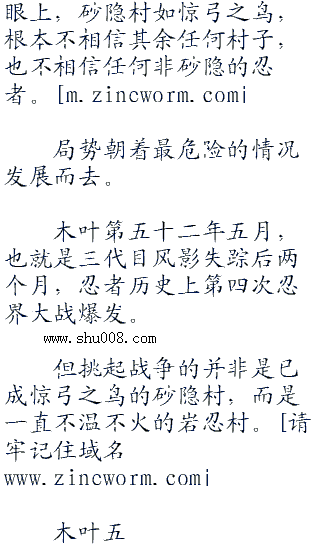 眼上，砂隐村如惊弓之鸟，
根本不相信其余任何村子，
也不相信任何非砂隐的忍
者。[m.zincworm.com]
局势朝着最危险的情况
发展而去。
木叶第五十二年五月，
也就是三代目风影失踪后两
个月，忍者历史上第四次忍
界大战爆发。
www.shu008.com
但挑起战争的并非是已
成惊弓之鸟的砂隐村，而是
一直不温不火的岩忍村。[请
牢记住域名
www.zincworm.com]
木叶五